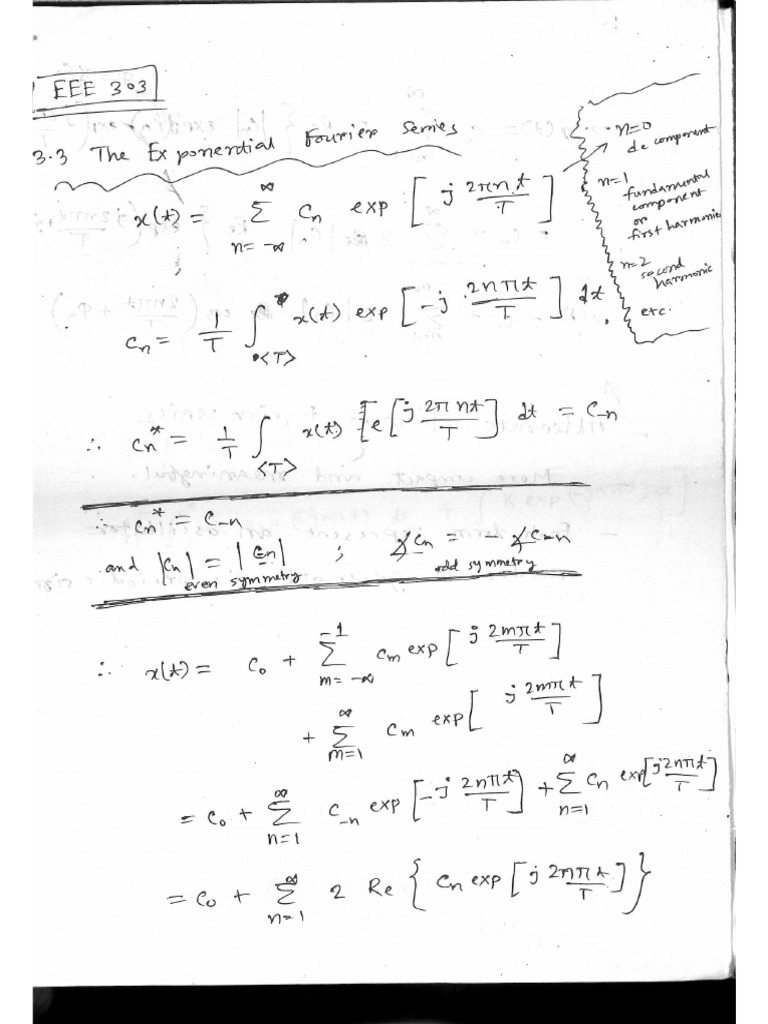 EEE 303
3.3 The Exponential Fourier Series
x(t) = ∑_{n=-∞}^{∞} Cn exp [ j 2πnt/T ]
n=0
dc component
n=1
fundamental
component
or
first harmonic
n=2
second
harmonic
etc.
Cn = 1/T ∫_{<T>} x(t) exp [ -j 2nπt/T ] dt.
∴ Cn* = 1/T ∫_{<T>} x(t) [e [ j 2π nt/T ] dt = C-n
∴ Cn* = C-n
and |Cn| = |C-n| ; ∡Cn = - ∡C-n
even symmetry odd symmetry
∴ x(t) = C0 + ∑_{m=-∞}^{-1} Cm exp [ j 2mπt/T ]
+ ∑_{m=1}^{∞} Cm exp [ j 2mπt/T ]
= C0 + ∑_{n=1}^{∞} C-n exp [ -j 2nπt/T ] + ∑_{n=1}^{∞} Cn exp [ j2nπt/T ]
= C0 + ∑_{n=1}^{∞} 2 Re { Cn exp [ j 2nπt/T ] }